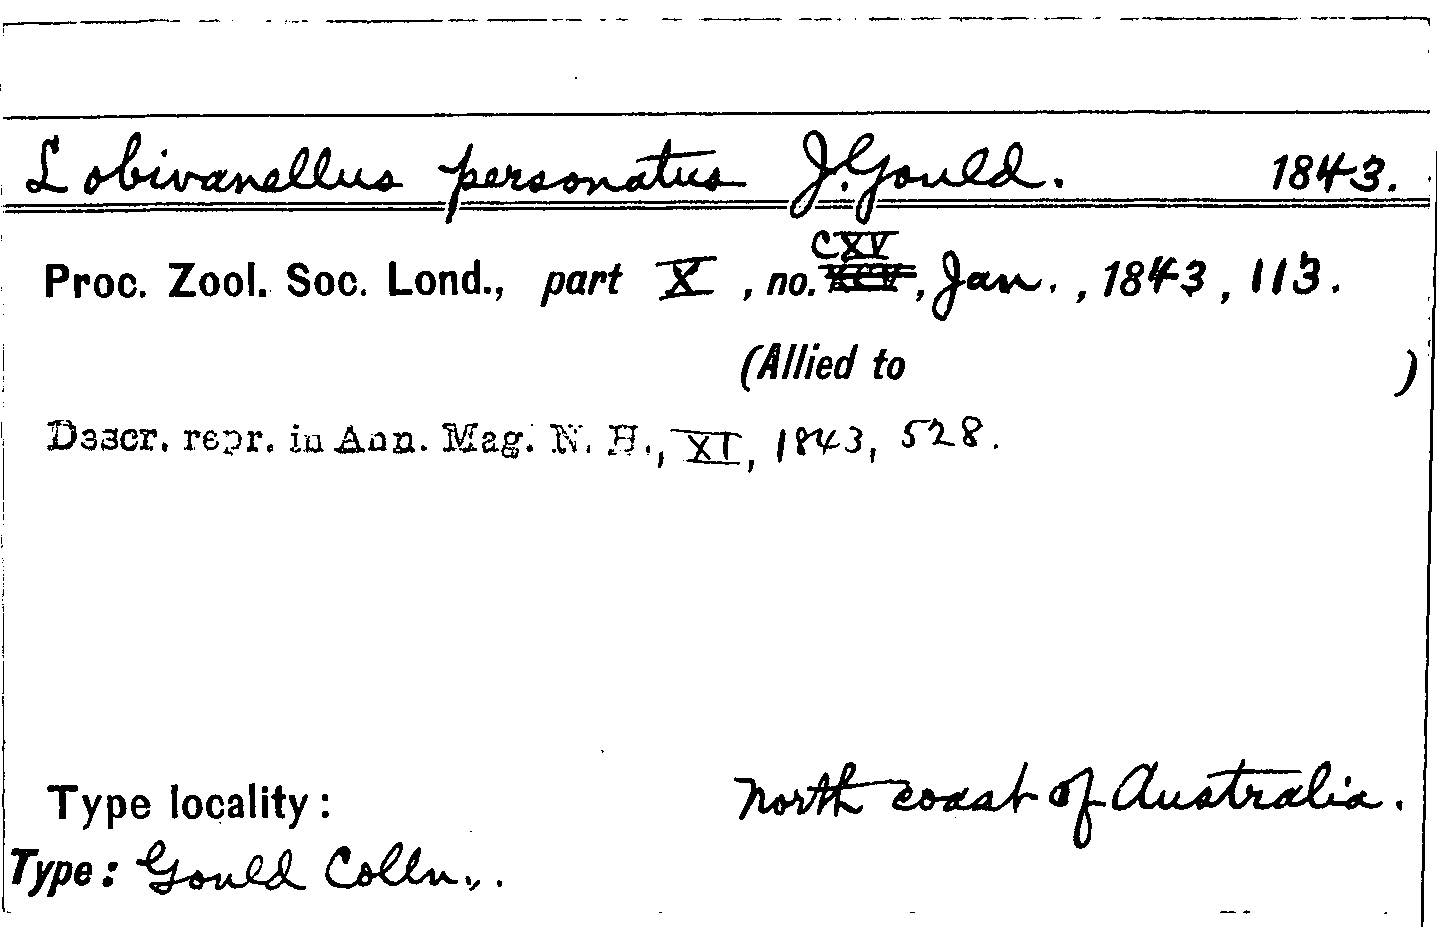 Lobivanellus personatus J. Gould. 1843.
Proc. Zool. Soc. Lond., part X, no. CXV, Jan., 1843, 113.
(Allied to )
Descr. repr. in Ann. Mag. N. H., XI, 1843, 528.
Type locality: North coast of Australia.
Type: Gould Colln..